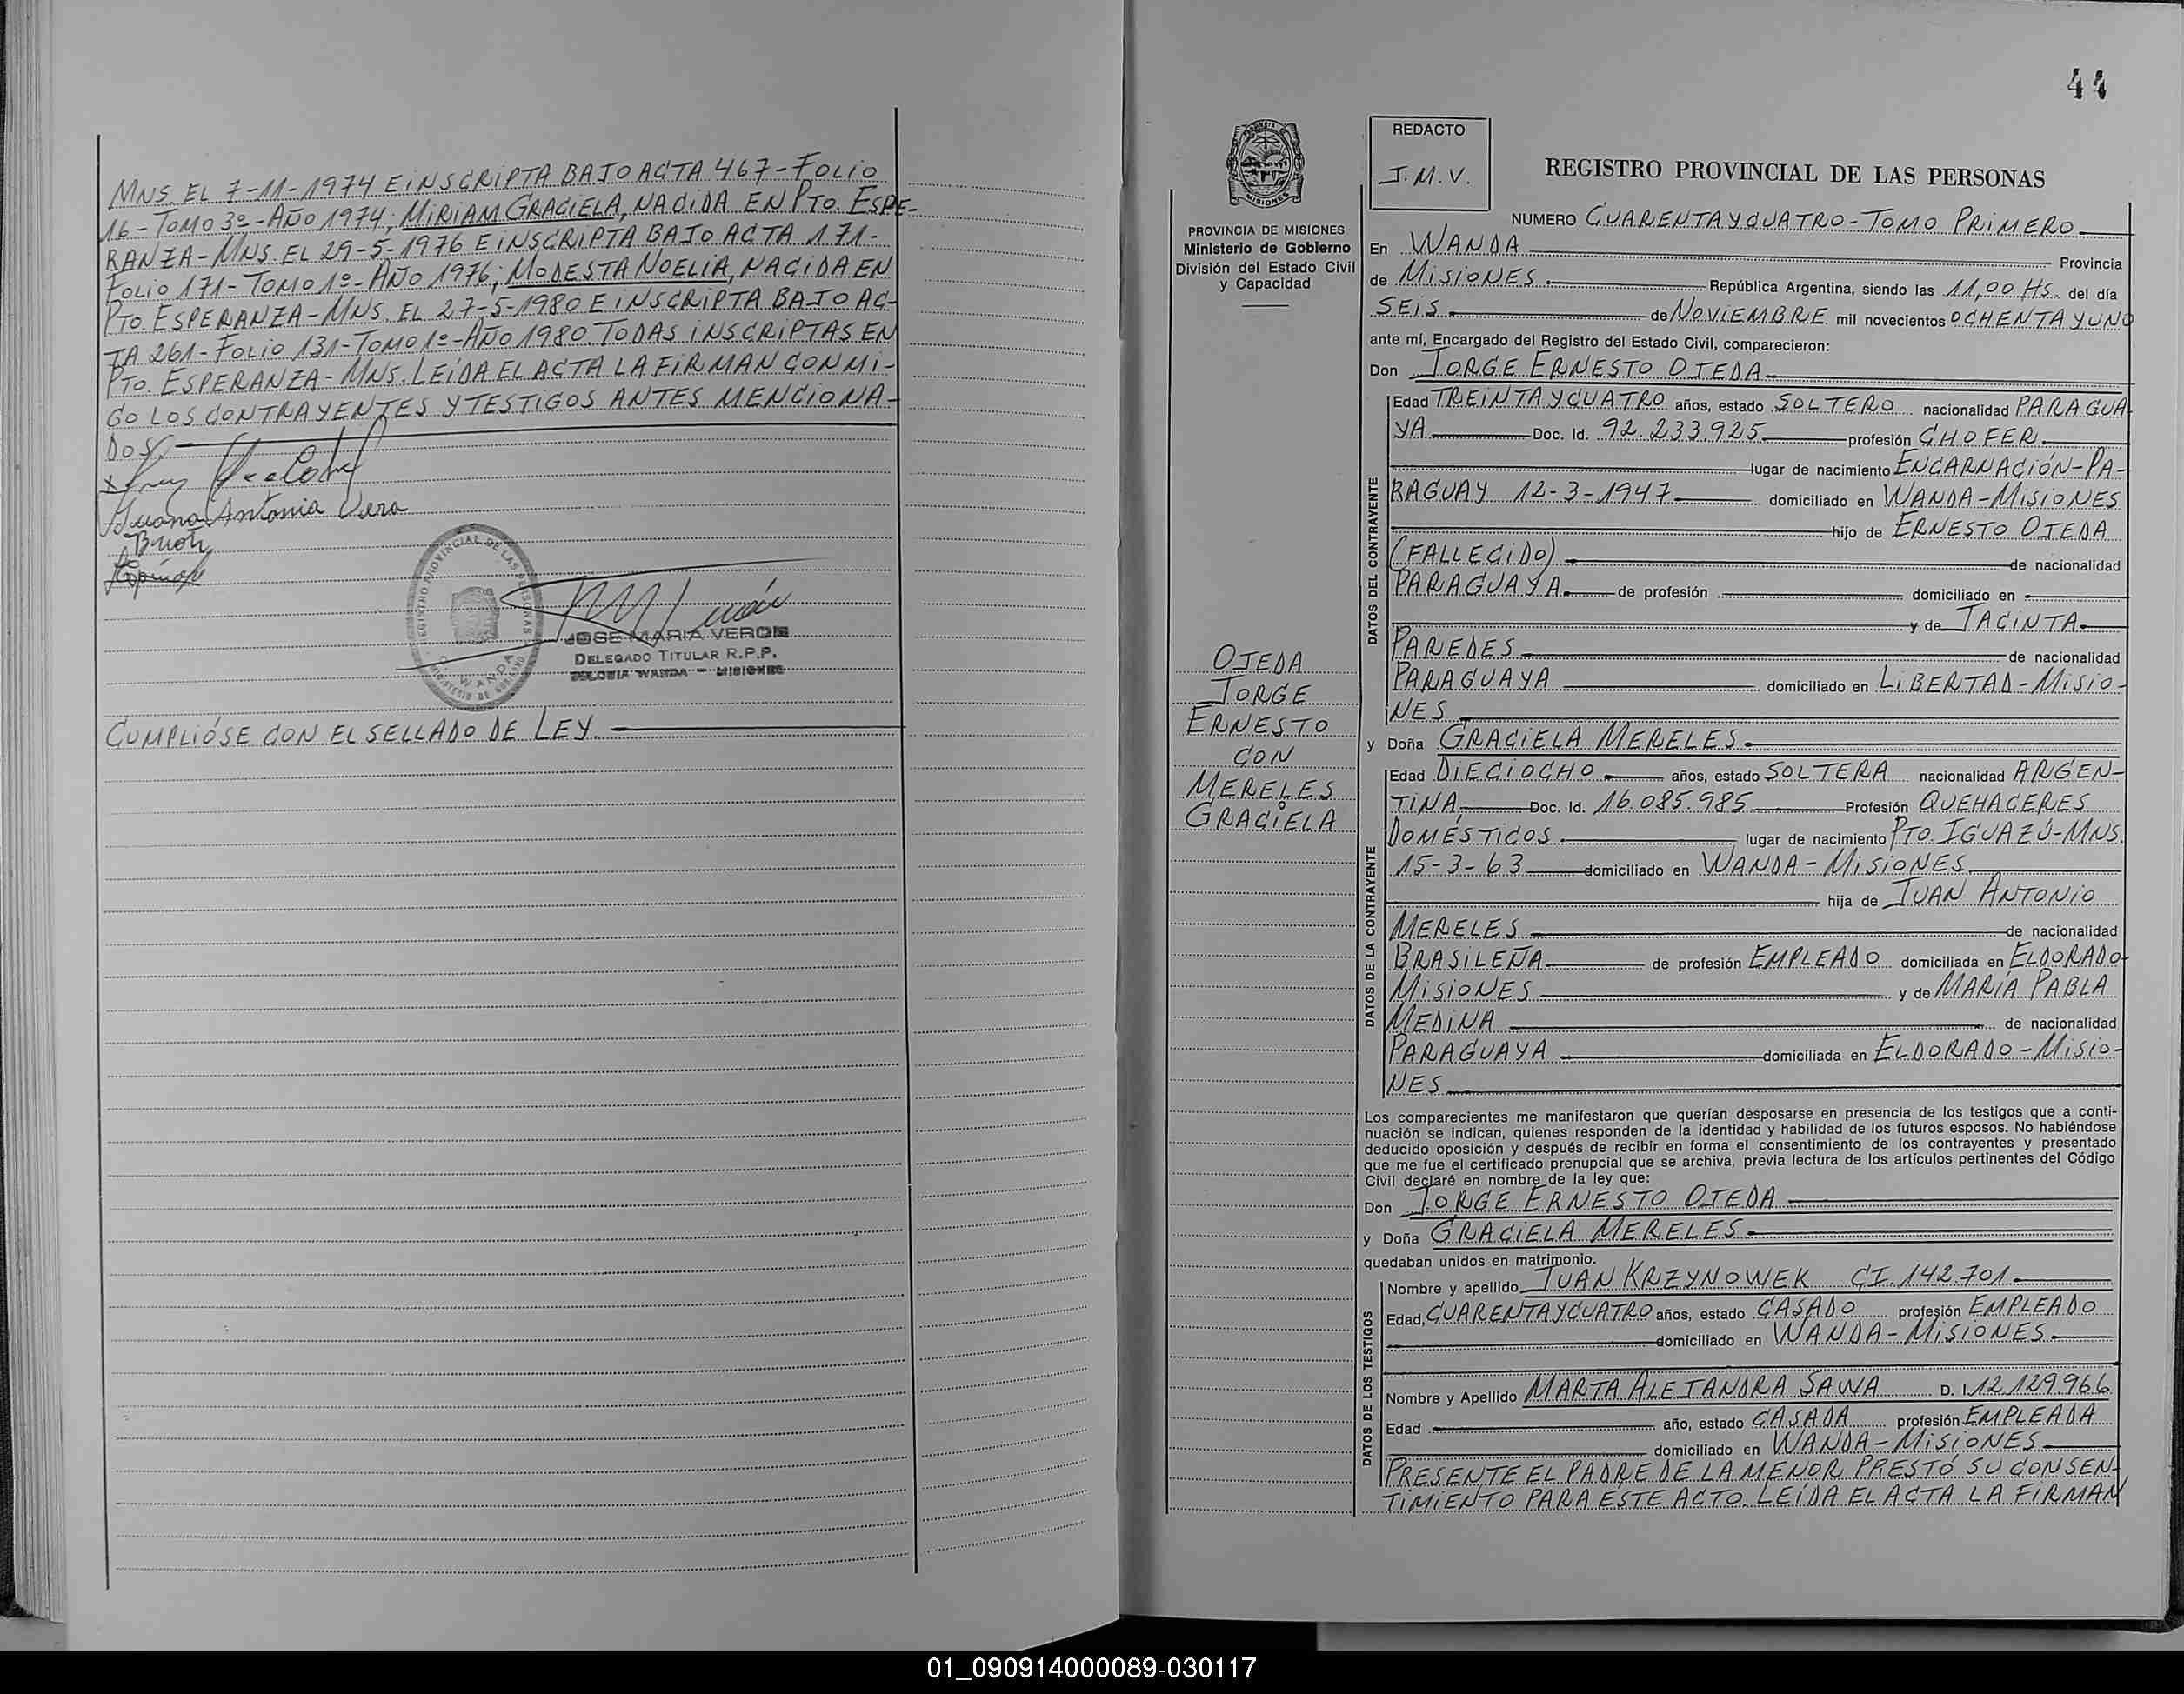 MNS. EL 7-11-1974 E INSCRIPTA BAJO ACTA 467-FOLIO
16-TOMO 3º-AÑO 1974; MIRIAM GRACIELA, NACIDA EN PTO. ESPE-
RANZA-MNS. EL 29-5-1976 E INSCRIPTA BAJO ACTA 171-
FOLIO 171-TOMO 1º-AÑO 1976; MODESTA NOELIA, NACIDA EN
PTO. ESPERANZA-MNS. EL 27-5-1980 E INSCRIPTA BAJO AC-
TA 261-FOLIO 131-TOMO 1º-AÑO 1980. TODAS INSCRIPTAS EN
PTO. ESPERANZA-MNS. LEÍDA EL ACTA LA FIRMAN CONMI-
GO LOS CONTRAYENTES Y TESTIGOS ANTES MENCIONA-
DOS.
Juana Antonia Vera
REGISTRO PROVINCIAL DE LAS PERSONAS
WANDA
JOSE MARIA VERON
DELEGADO TITULAR R.P.P.
COLONIA WANDA - MISIONES
CUMPLIÓSE CON EL SELLADO DE LEY.
44
PROVINCIA DE MISIONES
Ministerio de Gobierno
División del Estado Civil
y Capacidad
OJEDA
JORGE
ERNESTO
CON
MERELES
GRACIELA
REDACTO
J.M.V.
REGISTRO PROVINCIAL DE LAS PERSONAS
NUMERO CUARENTA Y CUATRO-TOMO PRIMERO
En WANDA Provincia
de MISIONES República Argentina, siendo las 11,00 HS. del día
SEIS de NOVIEMBRE mil novecientos OCHENTA Y UNO
ante mí, Encargado del Registro del Estado Civil, comparecieron:
Don JORGE ERNESTO OJEDA
DATOS DEL CONTRAYENTE
Edad TREINTA Y CUATRO años, estado SOLTERO nacionalidad PARAGUA
YA Doc. Id. 92.233.925 profesión CHOFER
lugar de nacimiento ENCARNACIÓN-PA-
RAGUAY 12-3-1947 domiciliado en WANDA-MISIONES
hijo de ERNESTO OJEDA
(FALLECIDO) de nacionalidad
PARAGUAYA de profesión domiciliado en
y de JACINTA
PAREDES de nacionalidad
PARAGUAYA domiciliado en LIBERTAD-MISIO-
NES
y Doña GRACIELA MERELES
DATOS DE LA CONTRAYENTE
Edad DIECIOCHO años, estado SOLTERA nacionalidad ARGEN-
TINA Doc. Id. 16.085.985 Profesión QUEHACERES
DOMÉSTICOS lugar de nacimiento PTO. IGUAZÚ-MNS.
15-3-63 domiciliado en WANDA-MISIONES
hija de JUAN ANTONIO
MERELES de nacionalidad
BRASILEÑA de profesión EMPLEADO domiciliada en ELDORADO-
MISIONES y de MARÍA PABLA
MEDINA de nacionalidad
PARAGUAYA domiciliada en ELDORADO-MISIO-
NES
Los comparecientes me manifestaron que querían desposarse en presencia de los testigos que a conti-
nuación se indican, quienes responden de la identidad y habilidad de los futuros esposos. No habiéndose
deducido oposición y después de recibir en forma el consentimiento de los contrayentes y presentado
que me fue el certificado prenupcial que se archiva, previa lectura de los artículos pertinentes del Código
Civil declaré en nombre de la ley que:
Don JORGE ERNESTO OJEDA
y Doña GRACIELA MERELES
quedaban unidos en matrimonio.
DATOS DE LOS TESTIGOS
Nombre y apellido JUAN KRZYNOWEK CI. 142.701
Edad, CUARENTA Y CUATRO años, estado CASADO profesión EMPLEADO
domiciliado en WANDA-MISIONES
Nombre y Apellido MARTA ALEJANDRA SAWA D. I. 12.129.966
Edad año, estado CASADA profesión EMPLEADA
domiciliado en WANDA-MISIONES
PRESENTE EL PADRE DE LA MENOR PRESTÓ SU CONSEN-
TIMIENTO PARA ESTE ACTO. LEÍDA EL ACTA LA FIRMAN
01_090914000089-030117